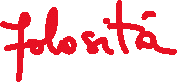 Golosità